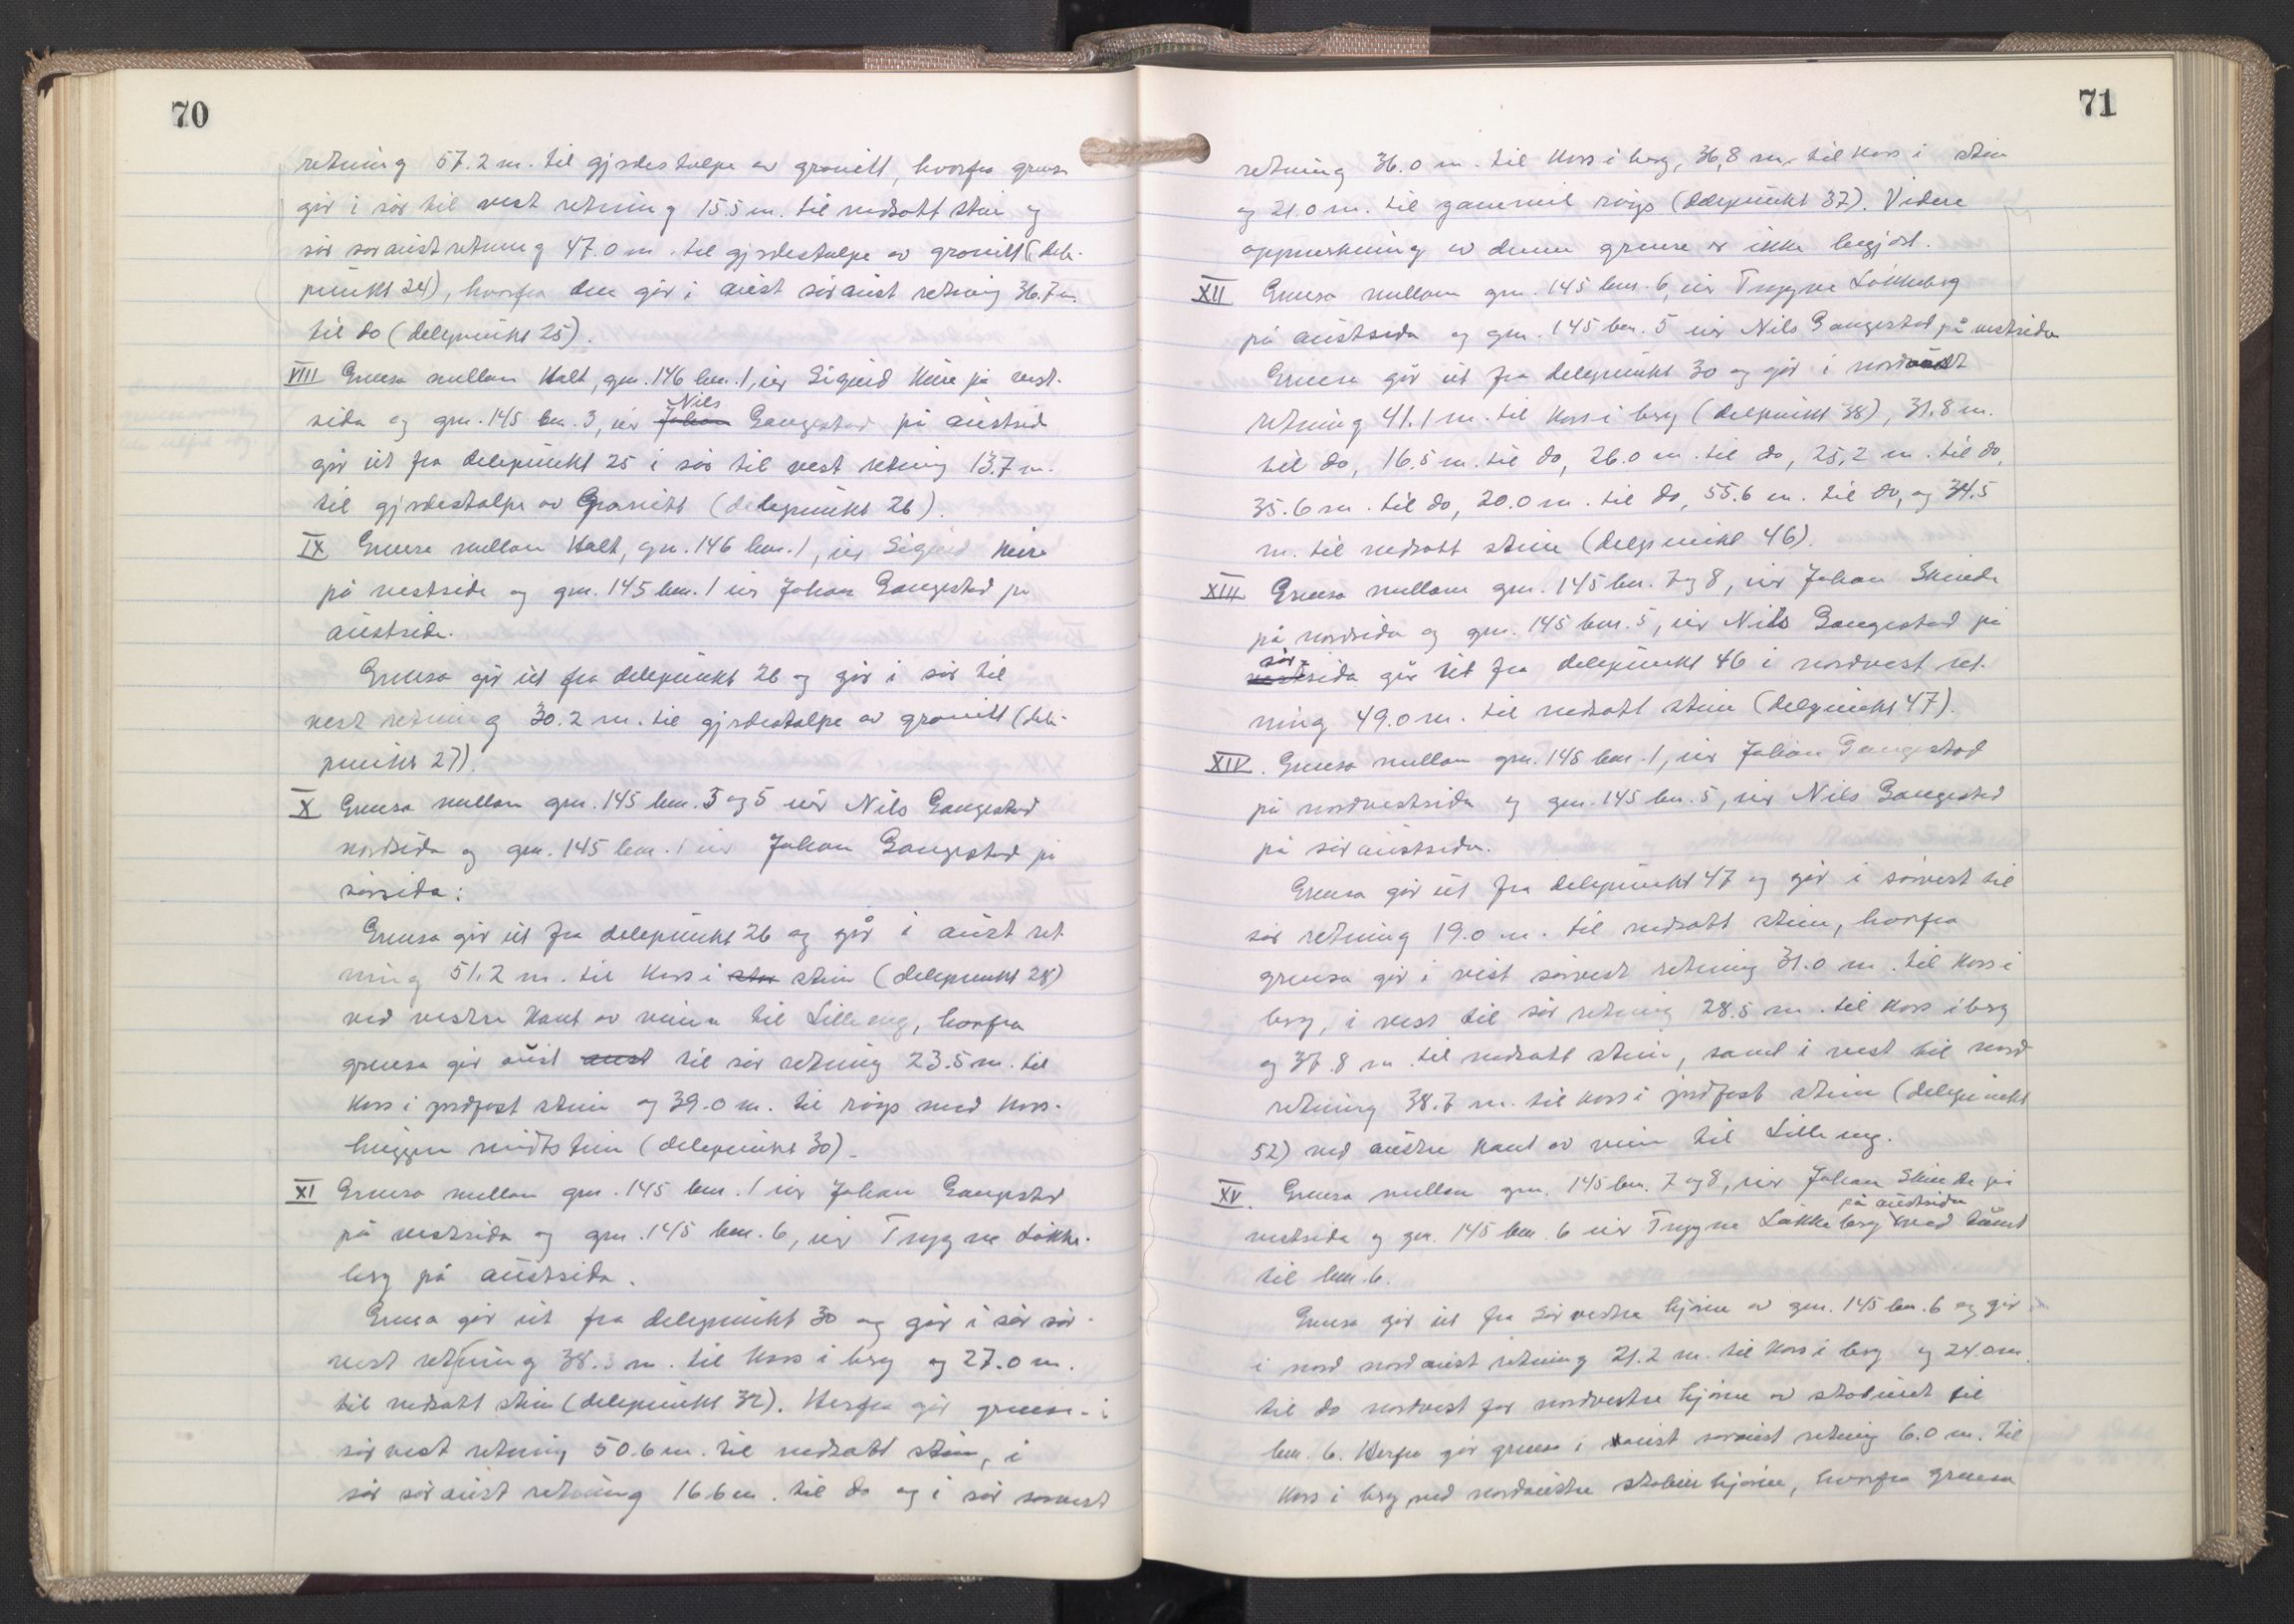 70
retning 57.2 m. til gjerdestolpe av granitt, hvorfra grensa
går i sør til vest retning 15.5 m. til nedsatt stein og
sør søraust retning 47.0 m. til gjerdestolpe av granitt (dele-
punkt 24), hvorfra den går i aust søraust retning 36.7 m.
til do (delepunkt 25).
VIII Grensa mellom Holt, gnr. 146 bnr. 1, eier Sigurd på vest-
sida og gnr. 145 bnr. 3, eier Johan Nils Gaugestad på austsid
går ut fra delepunkt 25 i sør til vest retning 13.7 m.
til gjerdestolpe av Granitt (delepunkt 26).
IX Grensa mellom Holt, gnr. 146 bnr. 1, eier Sigurd
på vestside og gnr. 145 bnr. 1 eier Johan Gaugestad på
austside.
Grensa går ut fra delepunkt 26 og går i sør til
vest retning 30.2 m. til gjerdestolpe av granitt (dele-
punkt 27).
X Grensa mellom gnr. 145 bnr. 3 og 5 eier Nils Gaugestad
nordsida og gnr. 145 bnr. 1 eier Johan Gaugestad på
sørsida:
Grensa går ut fra delepunkt 26 og går i aust ret
ning 51.2 m. til kors i stei stein (delepunkt 28)
ved vestre kant av veien til Lilleeng, hvorfra
grensa går aust aust til sør retning 23.5 m. til
kors i jordfast stein og 39.0 m. til røys med kors-
huggen midtstein (delepunkt 30).
XI Grensa mellom gnr. 145 bnr. 1 eier Johan Gaugestad
på vestsida og gnr. 145 bnr. 6, eier Trygve Løkke-
berg på austsida.
Grensa går ut fra delepunkt 30 og går i sør sør-
vest retning 38.3 m. til kors i berg og 27.0 m.
til nedsatt stein (delepunkt 32). Herfra går grensa i
sørvest retning 50.6 m. til nedsatt stein, i
sør søraust retning 16.6 m. til do og i sør sørvest
71
retning 36.0 m. til kors i berg, 36,8 m. til kors i stein
og 21.0 m. til gammel røys (delepunkt 37). Videre
oppmerkning av denne grense er ikke begjært.
XII Grensa mellom gnr. 145 bnr. 6, eier Trygve Løkkeberg
på austsida og gnr. 145 bnr. 5 eier Nils Gaugestad på vestsida
Grensa går ut fra delepunkt 30 og går i nordaust
retning 41.1 m. til kors i berg (delepunkt 38), 31.8 m.
til do, 16.5 m. til do, 26.0 m. til do, 25,2 m. til do,
35.6 m. til do, 20.0 m. til do, 55.6 m. til do, og 34.5
m. til nedsatt stein (delepunkt 46).
XIII Grensa mellom gnr. 145 bnr. 7 og 8, eier Johan
på nordsida og gnr. 145 bnr. 5, eier Nils Gaugestad på
vest sør-sida går ut fra delepunkt 46 i nordvest ret-
ning 49.0 m. til nedsatt stein (delepunkt 47).
XIV. Grensa mellom gnr. 145 bnr. 1, eier Johan Gaugestad
på nordvestsida og gnr. 145 bnr. 5, eier Nils Gaugestad
på søraustsida.
Grensa går ut fra delepunkt 47 og går i sørvest til
sør retning 19.0 m. til nedsatt stein, hvorfra
grensa går i vest sørvest retning 31.0 m. til kors i
berg, i vest til sør retning 28.5 m. til kors i berg
og 37.8 m. til nedsatt stein, samt i vest til nord
retning 38.7 m. til kors i jordfast stein (delepunkt
52) ved austre kant av veien til Lilleeng.
XV. Grensa mellom gnr. 145 bnr. 7 og 8, eier Johan på
vestsida og gnr. 145 bnr. 6 eier Trygve Løkkeberg på austsida ved tomt
til bnr. 6.
Grensa går ut fra sørvestre hjørne av gnr. 145 bnr. 6 og går
i nord nordaust retning 21.2 m. til kors i berg og 24.0 m.
til do nordvest for nordvestre hjørne av stabuet til
bnr. 6. Herfra går grensa i aust søraust retning 6.0 m. til
kors i berg ved nordaustre hjørne, hvorfra grensa